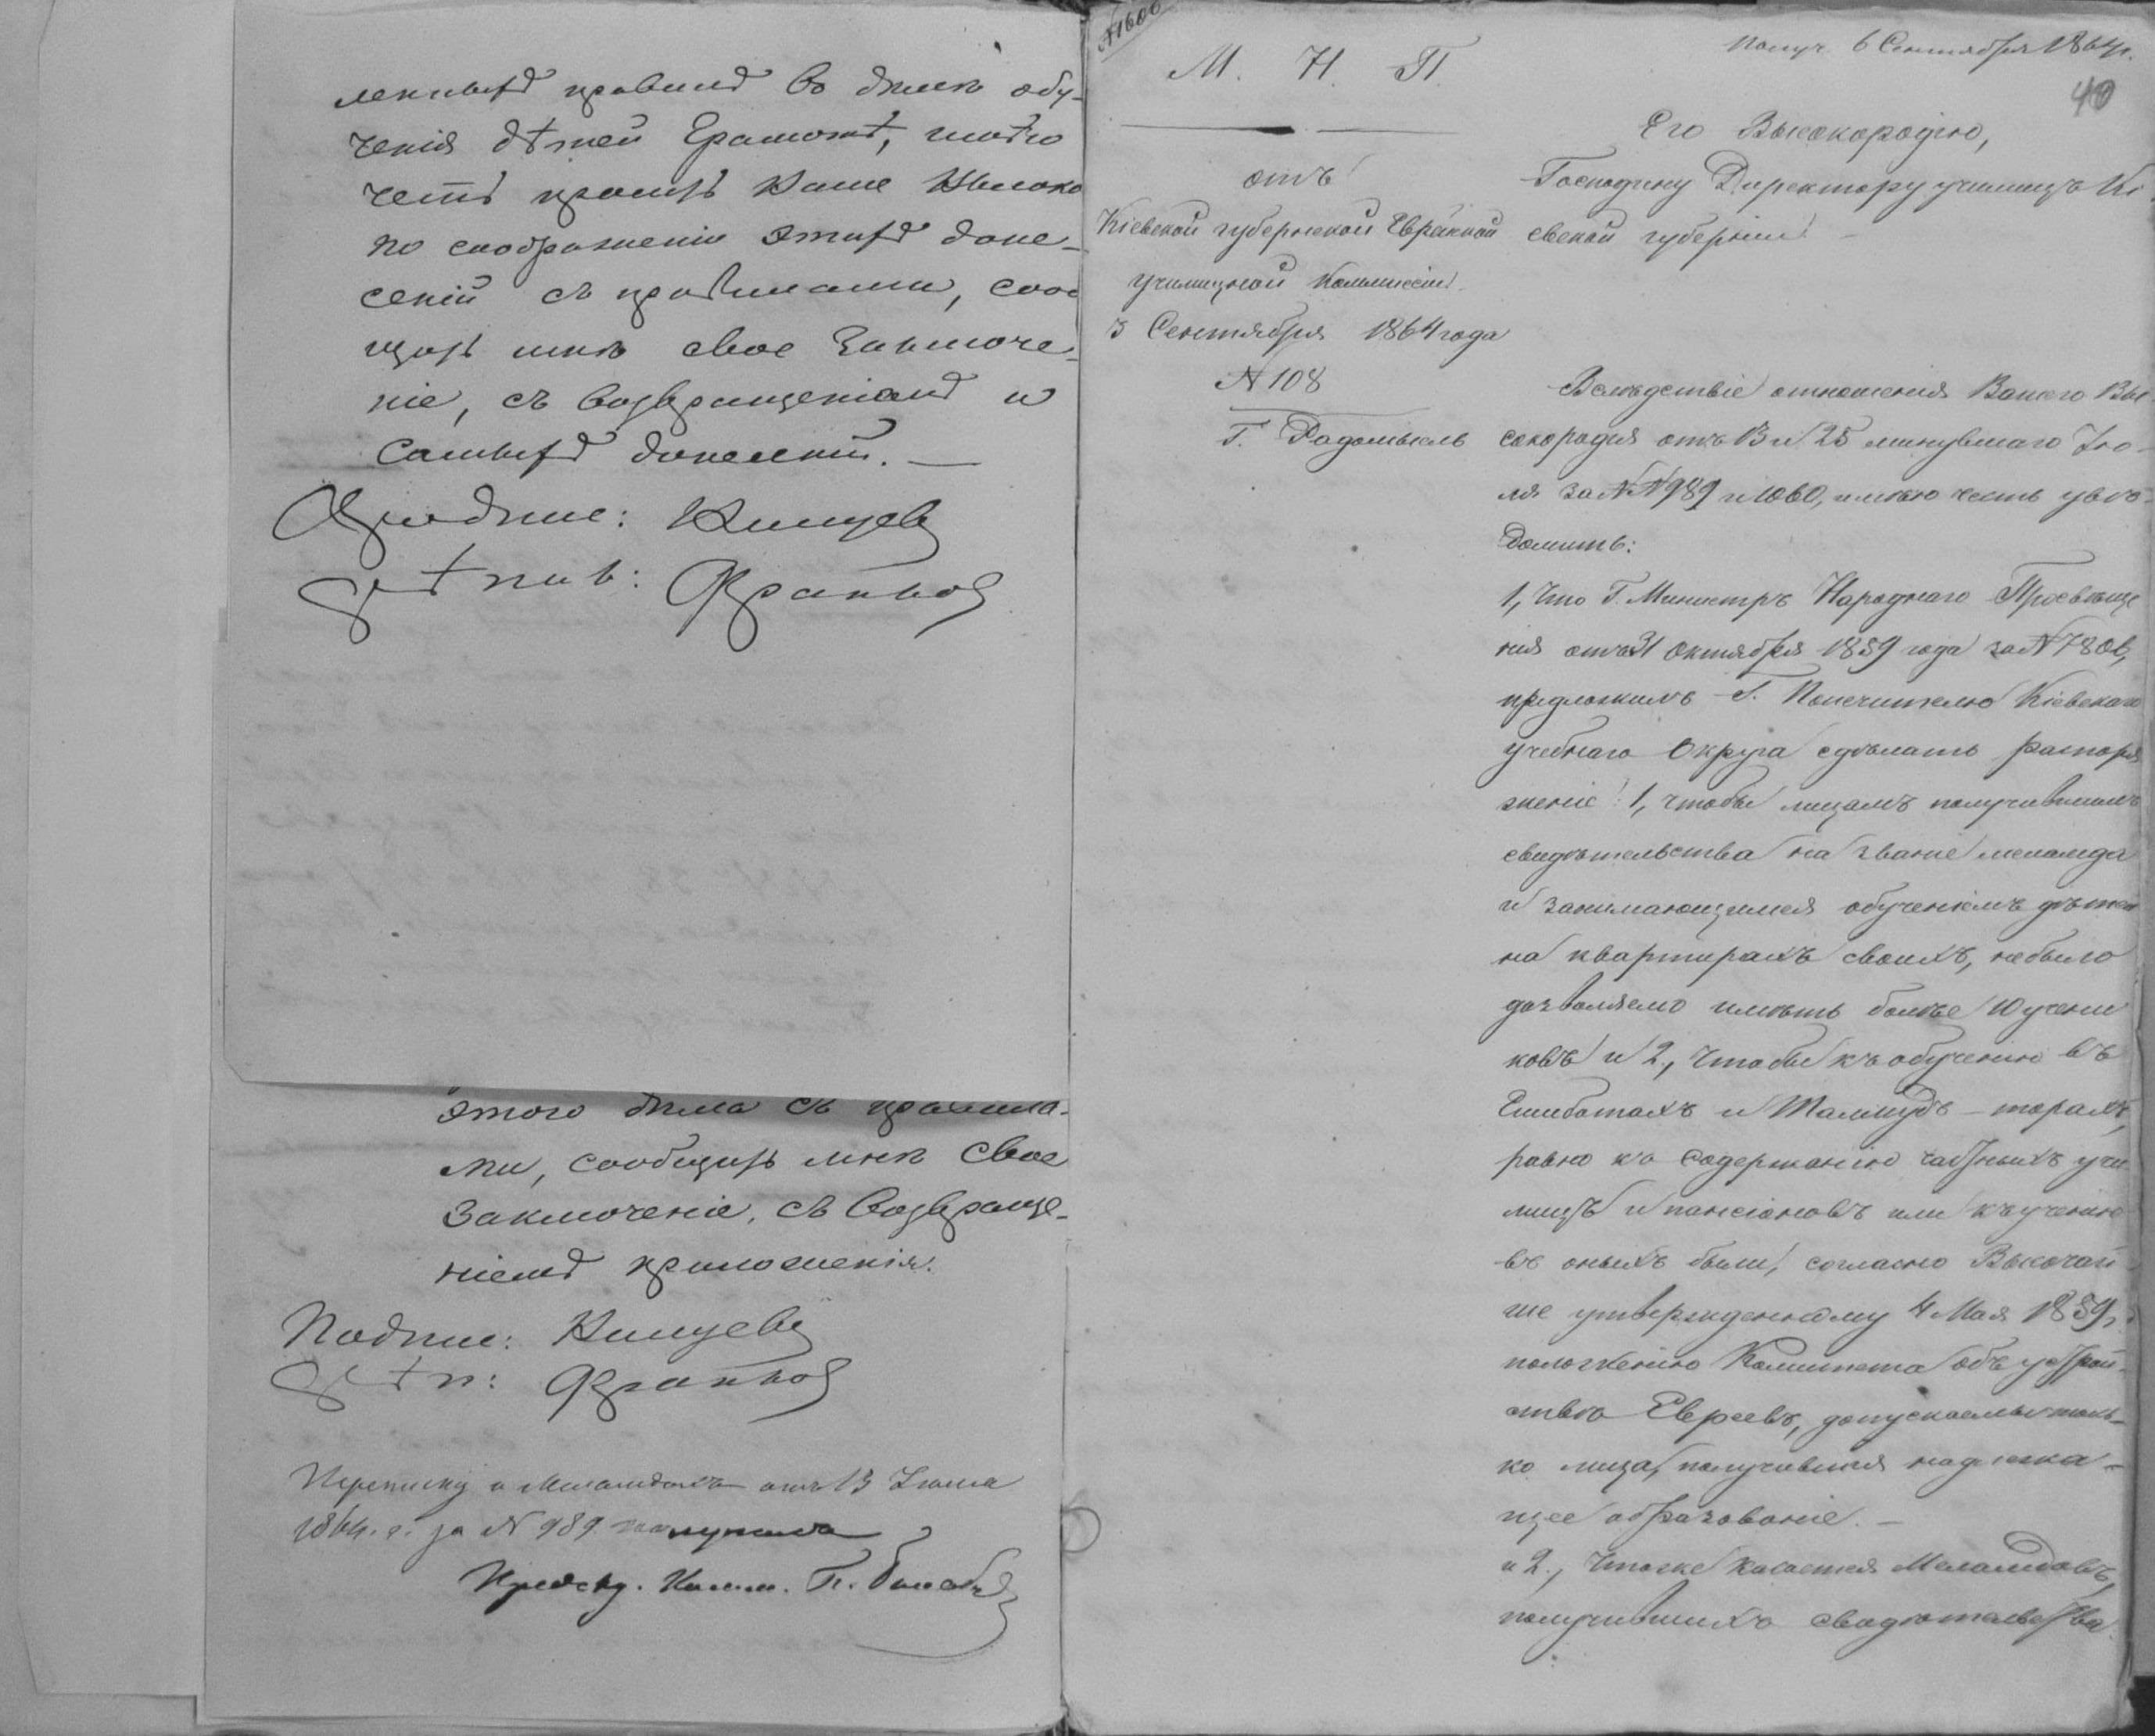 обу-
ченія дѣтей Грамотѣ, имѣю
честь просить Ваше Высоко
по соображеніи этихъ доне-
сеній съ правилами, сооб
щить мнѣ свое заключе-
ніе, съ возвращеніемъ и
самыхъ донесеній. —
Подпис:
этого дѣла съ правила-
ми, сообщить мнѣ свое
заключеніе, съ возвраще-
ніемъ приложенія.
Подпис:
Переписку о Меламдахъ отъ 13 Іюля
1864 г. за № 989 получилъ
Предсѣд. Комм.
№ 1600
М. Н. П.
отъ
Кіевской губернской Еврейской
училищной Коммиссіи
3 Сентября 1864 года
№ 108
Г. Радомысль
Получ. 6 Сентября 1864 г.
40
Его Высокородію,
Господину Директору училищъ Кі
евской губерніи. —
Вслѣдствіе отношенія Вашего Вы
сокородія отъ 13 и 25 минувшаго Ію-
ля за №№ 989 и 1060, имѣю честь увѣ-
домить:
1, Что Г. Министръ Народнаго Просвѣще
нія отъ 31 Октября 1859 года за №
предложилъ Г. Попечителю Кіевскаго
учебнаго Округа сдѣлать распоря
женіе: 1, чтобы лицамъ получившимъ
свидѣтельства на званіе меламда
и занимающимся обученіемъ дѣтей
на квартирахъ своихъ, небыло
дозволяемо имѣть болѣе 10 учени
ковъ и 2., Чтобы къ обученію въ
Ешиботахъ и Талмудъ-торахъ,
равно къ содержанію частныхъ учи
лищъ и пансіоновъ или къ ученію
въ оныхъ были, согласно Высочай
ше утвержденному 4 Мая 1859 г.
положенію Комитета объ устрой-
ствѣ Евреевъ, допускаемы толь-
ко лица, получившія надлежа-
щее образованіе. —
и 2., Чтоже касается Меламдовъ,
получившихъ свидѣтельства